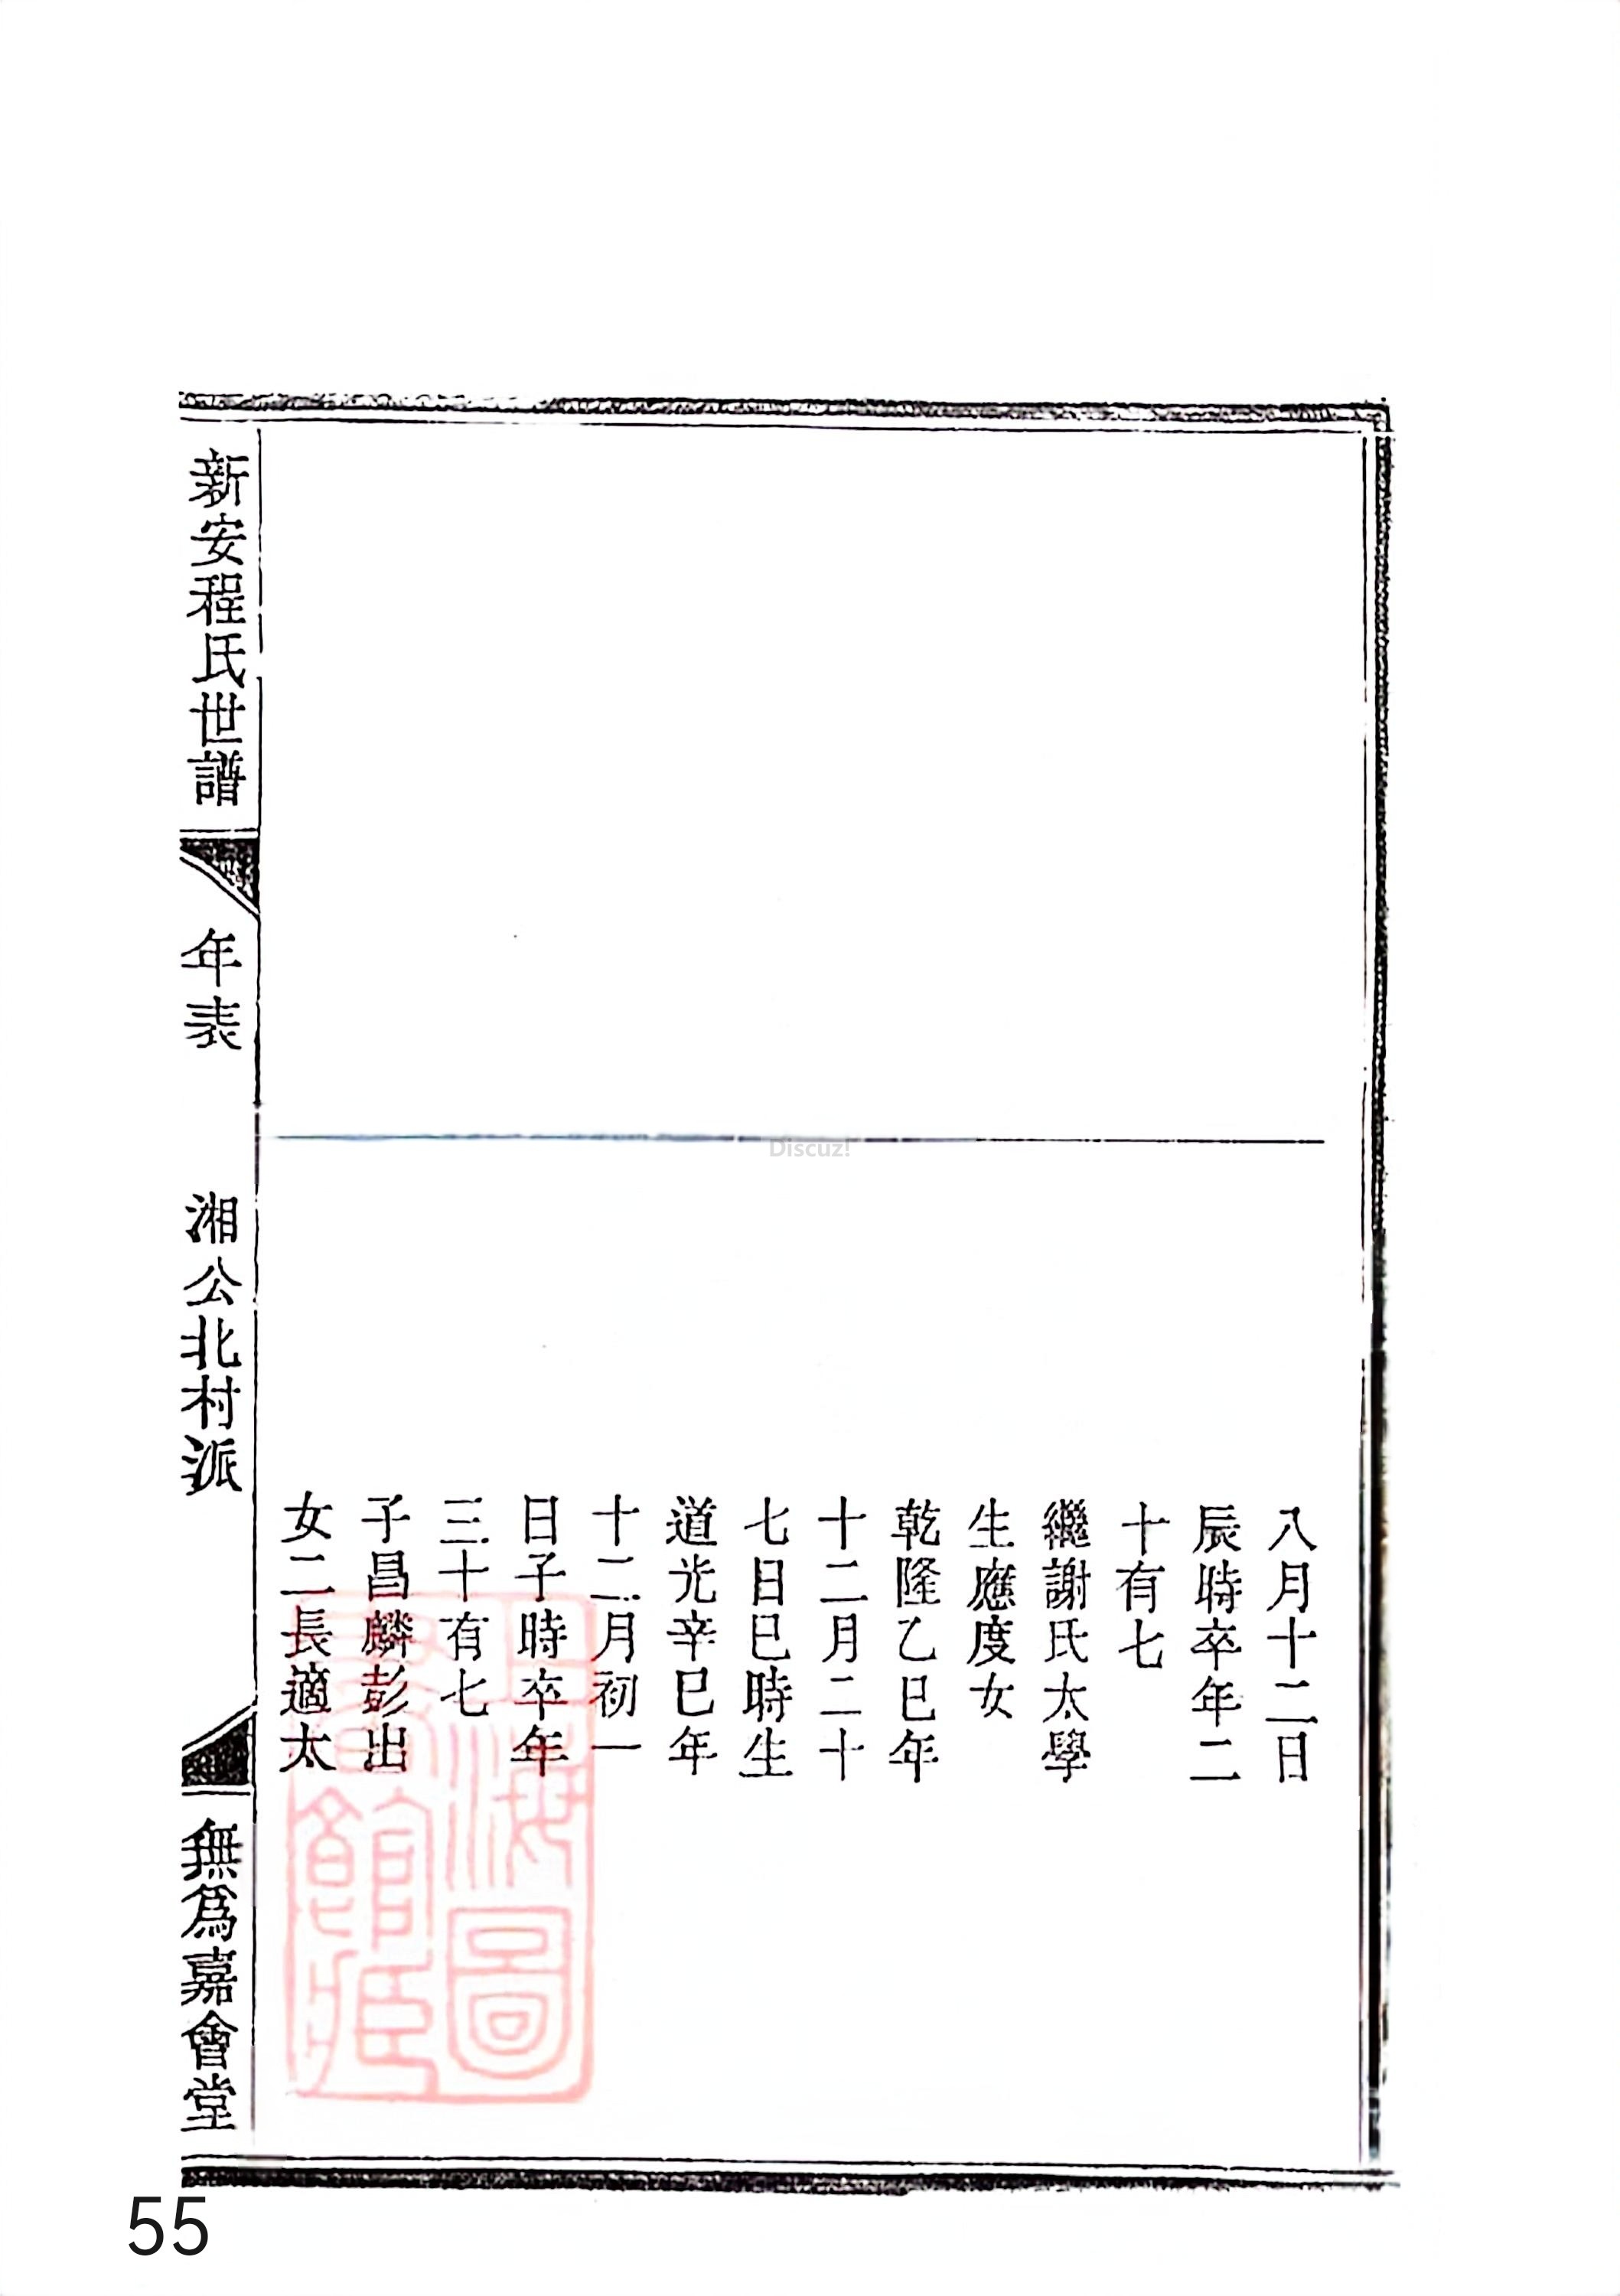 八月十二日
辰時卒年二
十有七
繼謝氏太學
生應度女
乾隆乙巳年
十二月二十
七日巳時生
道光辛巳年
十二月初一
日子時卒年
三十有七
子昌麟彭出
女二長適太
新安程氏世譜
年表
湘公北村派
無爲嘉會堂
上海圖書館藏
Discuz!
55